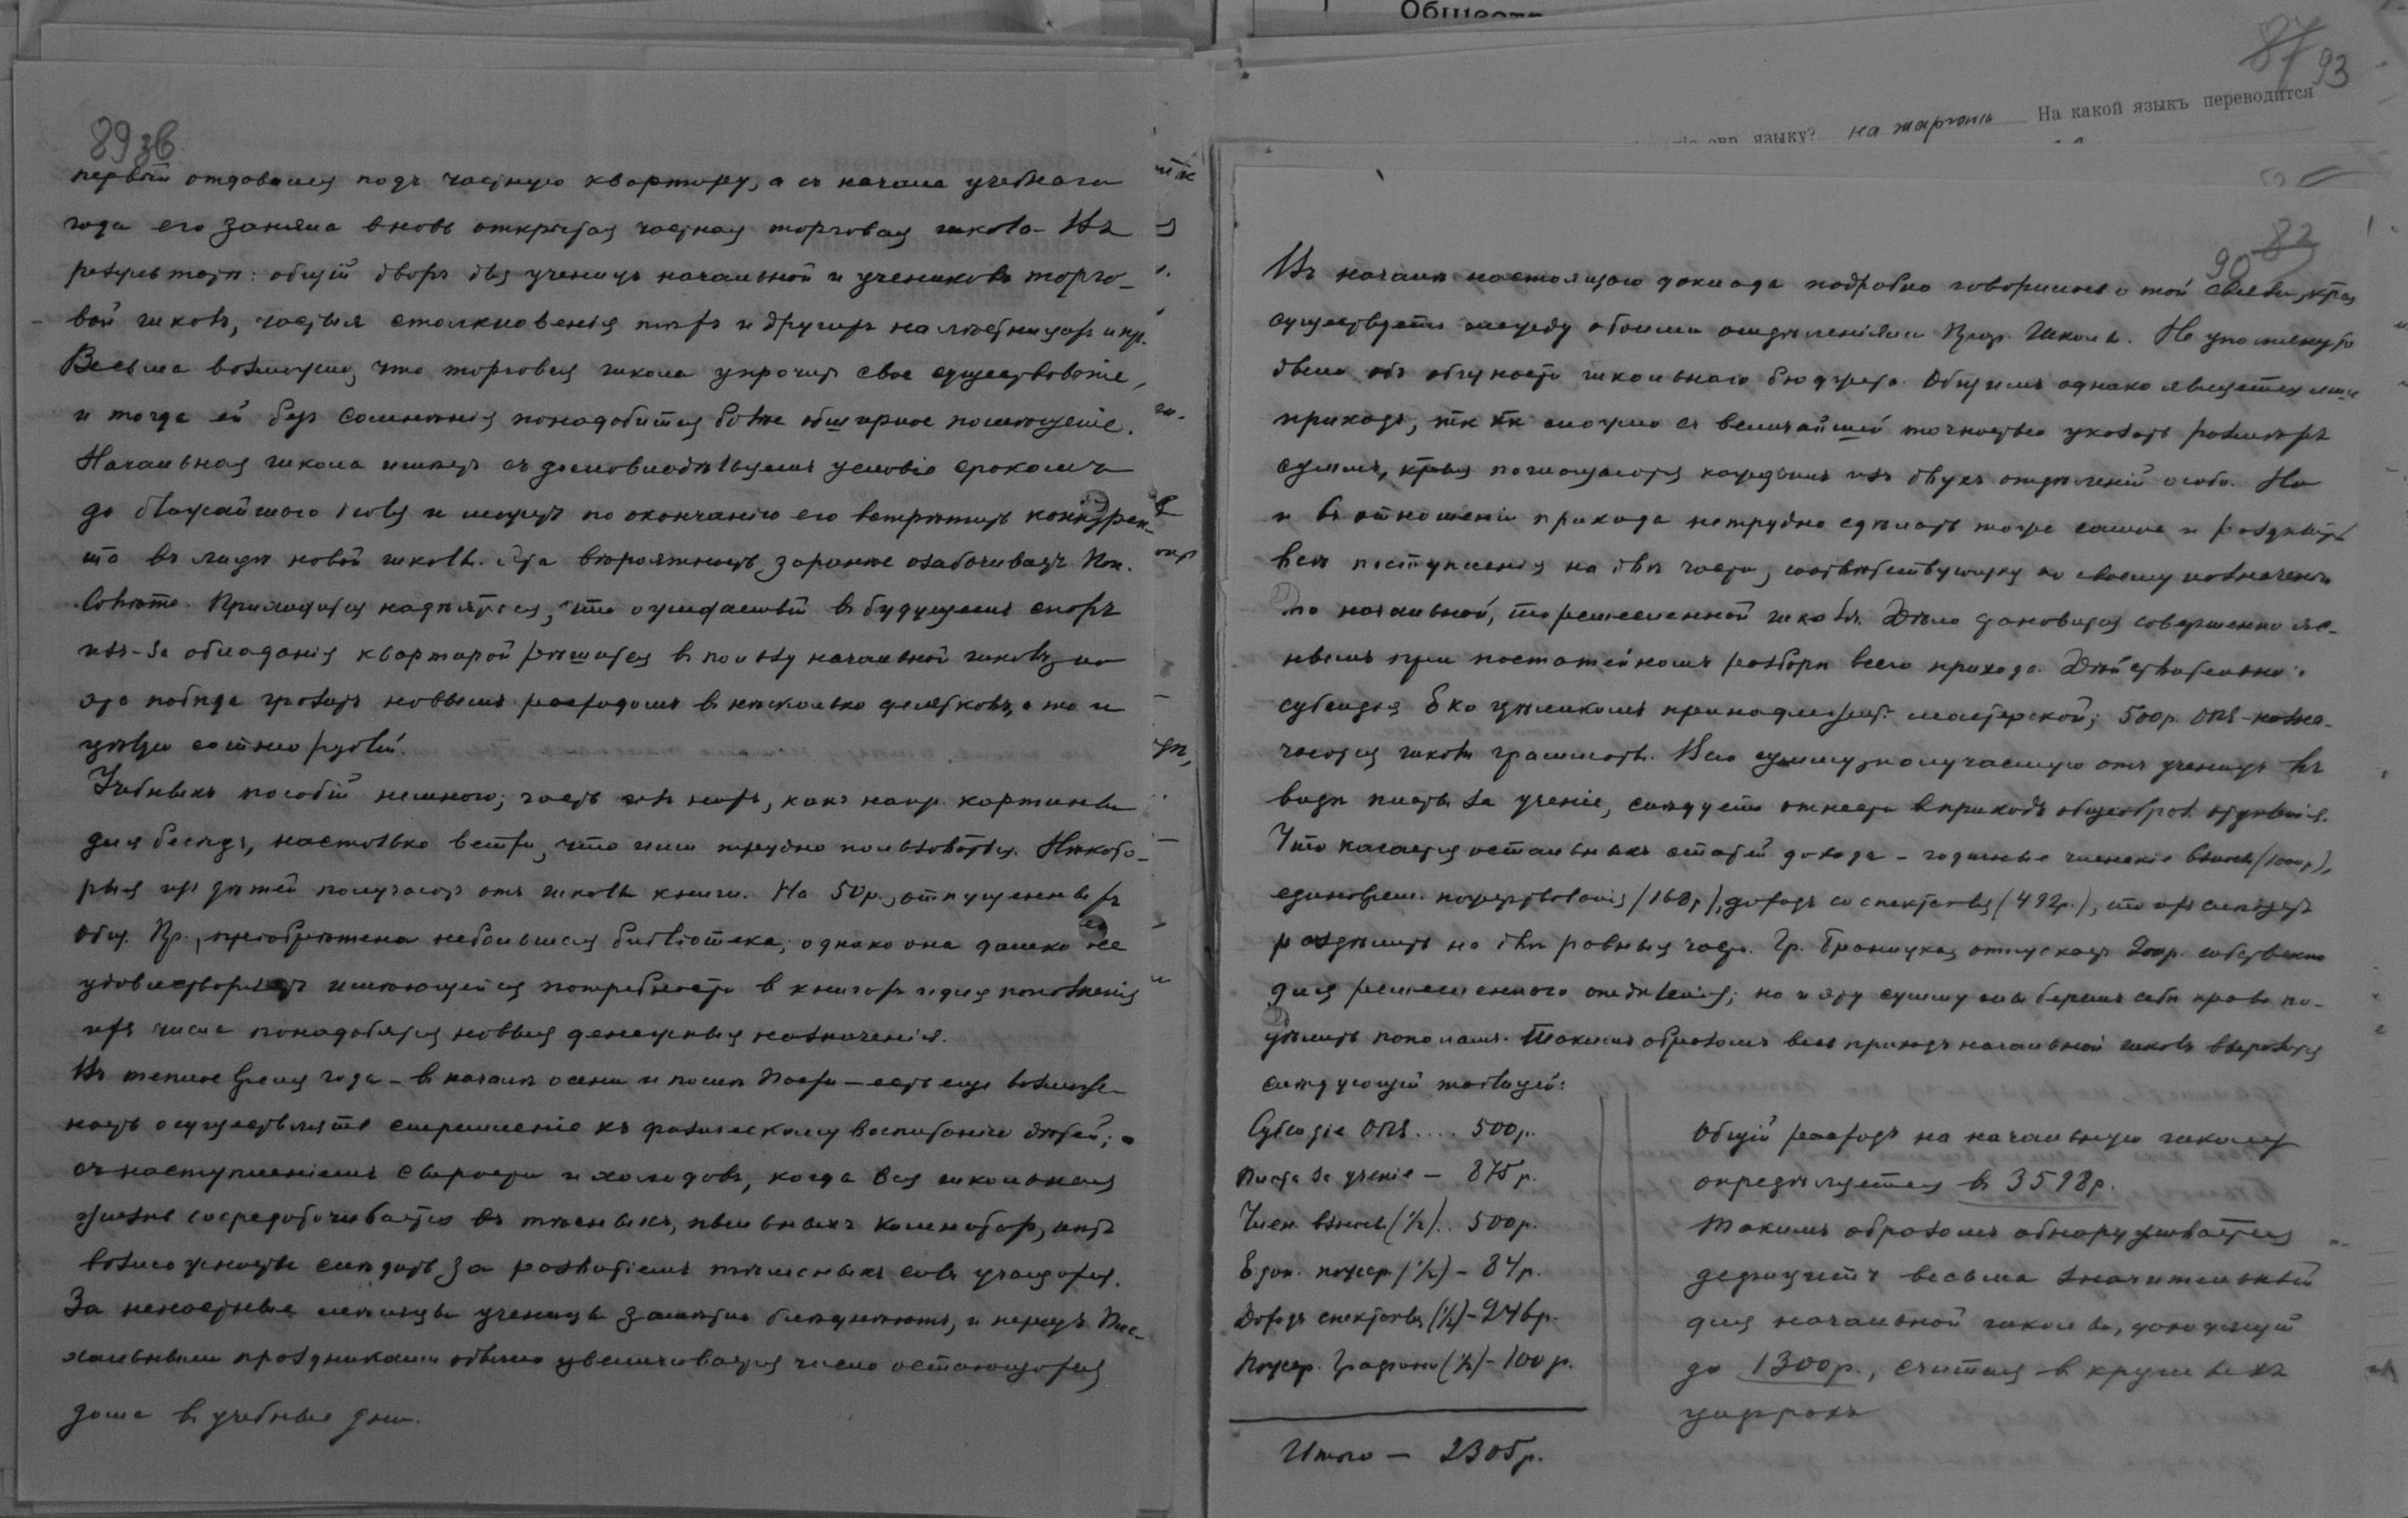 Обществ
87 93
языку? на жаргонъ На какой языкъ переводится
89 зв
первый отдавался подъ частную квартиру, а съ начала учебнаго
года его заняла вновь открытая частная торговая школа. Въ
результатѣ: общій дворъ для ученицъ начальной и учениковъ торго-
вой школъ, частыя столкновенія тѣхъ и другихъ на лѣстницахъ и пр.
Весьма возможно, что торговая школа упрочитъ свое существованіе,
и тогда ей безъ сомнѣнія понадобится болѣе обширное помѣщеніе.
Начальная школа имѣетъ съ домовладѣльцемъ условіе срокомъ
до ближайшаго іюля и можетъ по окончаніи его встрѣтить конкурен-
та въ лицѣ новой школы. Эта вѣроятность заранѣе озабочиваетъ Поп.
Совѣтъ. Приходится надѣяться, что ожидаемый въ будущемъ споръ
изъ-за обладанія квартирой рѣшится въ пользу начальной школы, но
эта побѣда грозитъ новымъ расходомъ въ нѣсколько десятковъ, а то и
цѣлую сотню рублей.
Учебныхъ пособій немного; часть изъ нихъ, какъ напр. картины
для бесѣдъ, настолько ветхи, что ими трудно пользоваться. Нѣкото-
рыя изъ дѣтей получаютъ отъ школы книги. На 50р., отпущенныхъ
Общ. Пр., пріобрѣтена небольшая библіотека; однако она далеко не
удовлетворяетъ имѣющейся потребности въ книгахъ и для пополненія
ихъ числа понадобятся новыя денежныя назначенія.
Въ теплое время года – въ началѣ осени и послѣ Пасхи – есть еще возмож-
ность осуществлять стремленіе къ физическому воспитанію дѣтей; а
съ наступленіемъ сырости и холодовъ, когда вся школьная
жизнь сосредоточивается въ тѣсныхъ, пыльныхъ комнатахъ, нѣтъ
возможности слѣдить за развитіемъ тѣлесныхъ силъ учащихся.
За ненастные мѣсяцы ученицы замѣтно блѣднѣютъ, и передъ Пас-
хальными праздниками обычно увеличивается число остающихся
дома въ учебные дни.
90 82
Въ началѣ настоящаго доклада подробно говорилось о той связи, ктрая
существуетъ между обоими отдѣленіями Проф. Школы. Не упомянуто
было объ общности школьнаго бюджета. Общимъ однако является лишь
приходъ, тк кк можно съ величайшей точностью указать размѣръ
суммъ, ктрыя поглощаются каждымъ изъ двухъ отдѣленій особо. Но
и въ отношеніи прихода нетрудно сдѣлать тоже самое и раздѣлить
всѣ поступленія на двѣ части, соотвѣтствующія по своему назначенію
то начальной, то ремесленной школѣ. Дѣло становится совершенно яс-
нымъ при постатейномъ разборѣ всего прихода. Дѣйствительно:
субсидія Еко цѣликомъ принадлежитъ мастерской; 500р. ОПЕ – назна-
чаются школѣ грамоты. Всю сумму, получаемую отъ ученицъ въ
видѣ платы за ученіе, слѣдуетъ отнести въ приходъ общеобраз. отдѣленія.
Что касается остальныхъ статей дохода – годичные членскіе взносы (1000р),
единоврем. пожертвованія (168р), доходъ со спектакля (492р.), то ихъ слѣдуетъ
раздѣлить на двѣ равныя части. Гр. Браницкая отпускаетъ 200р. собственно
для ремесленнаго отдѣленія; но и эту сумму мы беремъ себѣ право по-
дѣлить пополамъ. Такимъ образомъ весь приходъ начальной школы выразится
слѣдующей таблицей:
Субсидіе ОПЕ.... 500р.
Плата за ученіе – 875р.
Член. взносы (½).. 500р.
Един. пожер. (½) – 84р.
Доходъ спектакля (½) – 246р.
Пожер. Графини (½) – 100р.
Итого – 2305р.
Общій расходъ на начальную школу
опредѣляется въ 3598р.
Такимъ образомъ обнаруживается
дефицитъ весьма значительный
для начальной школы, доходящій
до 1300р., считая въ круглыхъ
цифрахъ